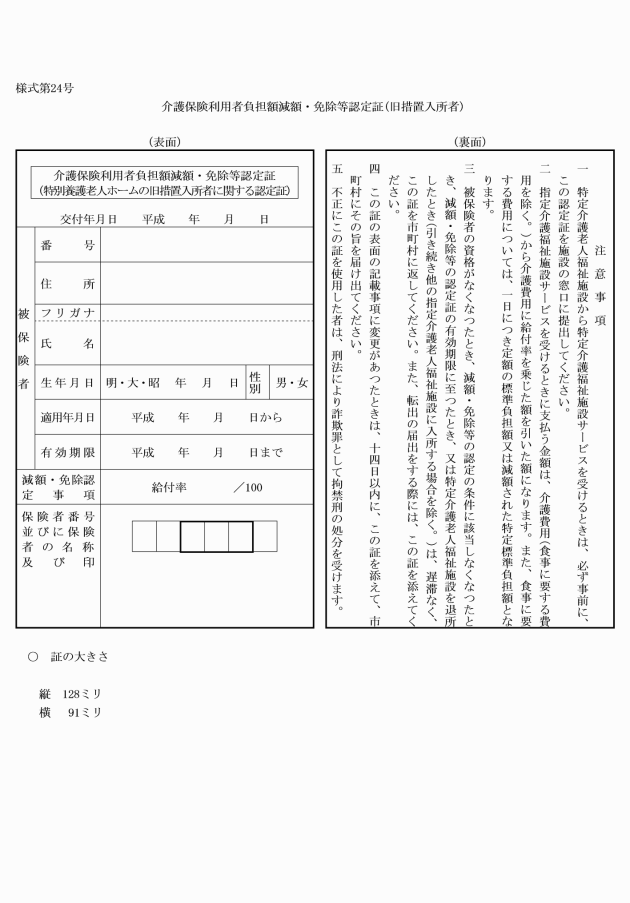 様式第24号
介護保険利用者負担額減額・免除等認定証(旧措置入所者)
(表面)
介護保険利用者負担額減額・免除等認定証
(特別養護老人ホームの旧措置入所者に関する認定証)
交付年月日　平成　年　月　日
被保険者
番号
住所
フリガナ
氏名
生年月日　明・大・昭　年　月　日　性別　男・女
適用年月日　平成　年　月　日から
有効期限　平成　年　月　日まで
減額・免除認
定事項
給付率　／100
保険者番号
並びに保険
者の名称
及び印
(裏面)
注意事項
一　特定介護老人福祉施設から特定介護福祉施設サービスを受けるときは、必ず事前に、
この認定証を施設の窓口に提出してください。
二　指定介護福祉施設サービスを受けるときに支払う金額は、介護費用(食事に要する費
用を除く。)から介護費用に給付率を乗じた額を引いた額になります。また、食事に要
する費用については、一日につき定額の標準負担額又は減額された特定標準負担額とな
ります。
三　被保険者の資格がなくなつたとき、減額・免除等の認定の条件に該当しなくなつたと
き、減額・免除等の認定証の有効期限に至つたとき、又は特定介護老人福祉施設を退所
したとき(引き続き他の指定介護老人福祉施設に入所する場合を除く。)は、遅滞なく、
この証を市町村に返してください。また、転出の届出をする際には、この証を添えてく
ださい。
四　この証の表面の記載事項に変更があつたときは、十四日以内に、この証を添えて、市
町村にその旨を届け出てください。
五　不正にこの証を使用した者は、刑法により詐欺罪として拘禁刑の処分を受けます。
○　証の大きさ
縦　128ミリ
横　91ミリ